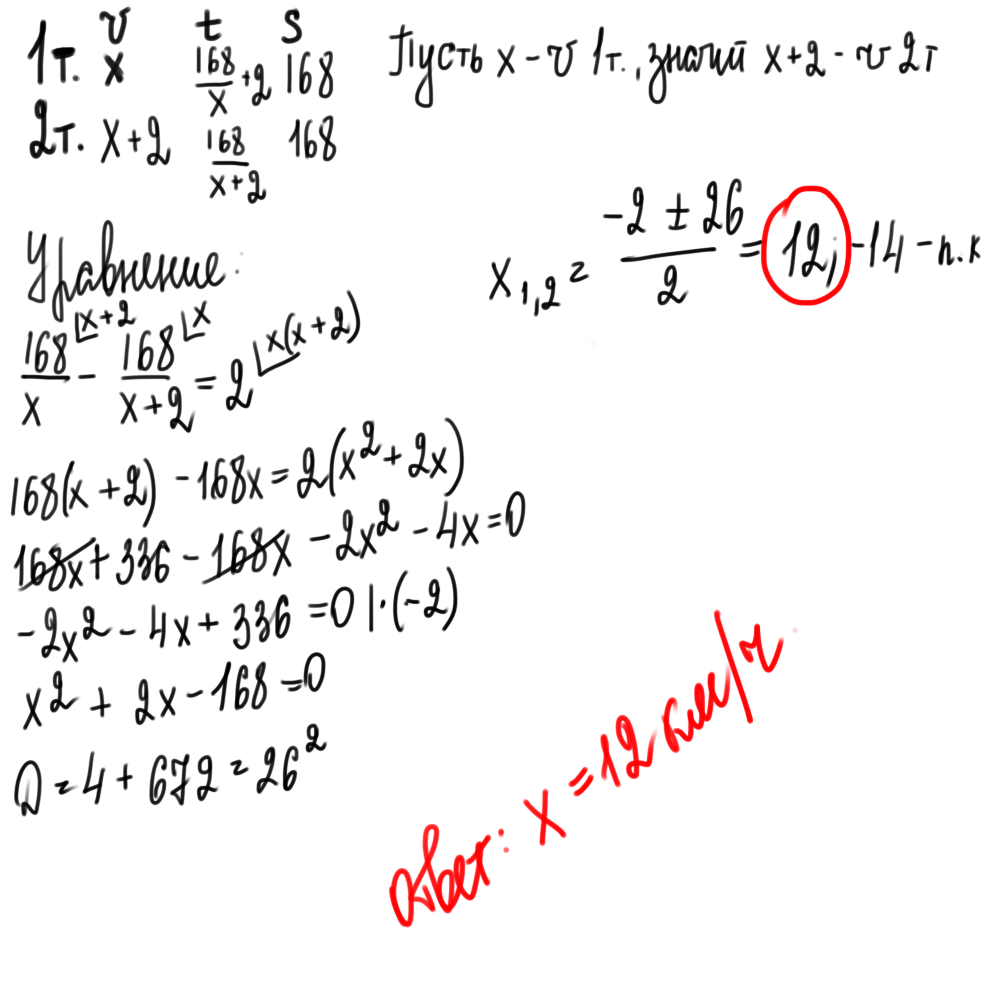 v t s
1т. x 168/x +2 168
2т. x+2 168/(x+2) 168
Пусть x - v 1т., значит x+2 - v 2т
x₁,₂ = (-2 ± 26)/2 = 12; -14 - п.к
Уравнение:
168/x ⌊x+2 - 168/(x+2) ⌊x = 2 ⌊x(x+2)
168(x+2) - 168x = 2(x² + 2x)
168x + 336 - 168x - 2x² - 4x = 0
-2x² - 4x + 336 = 0 | · (-2)
x² + 2x - 168 = 0
D = 4 + 672 = 26²
Ответ: x = 12 км/ч